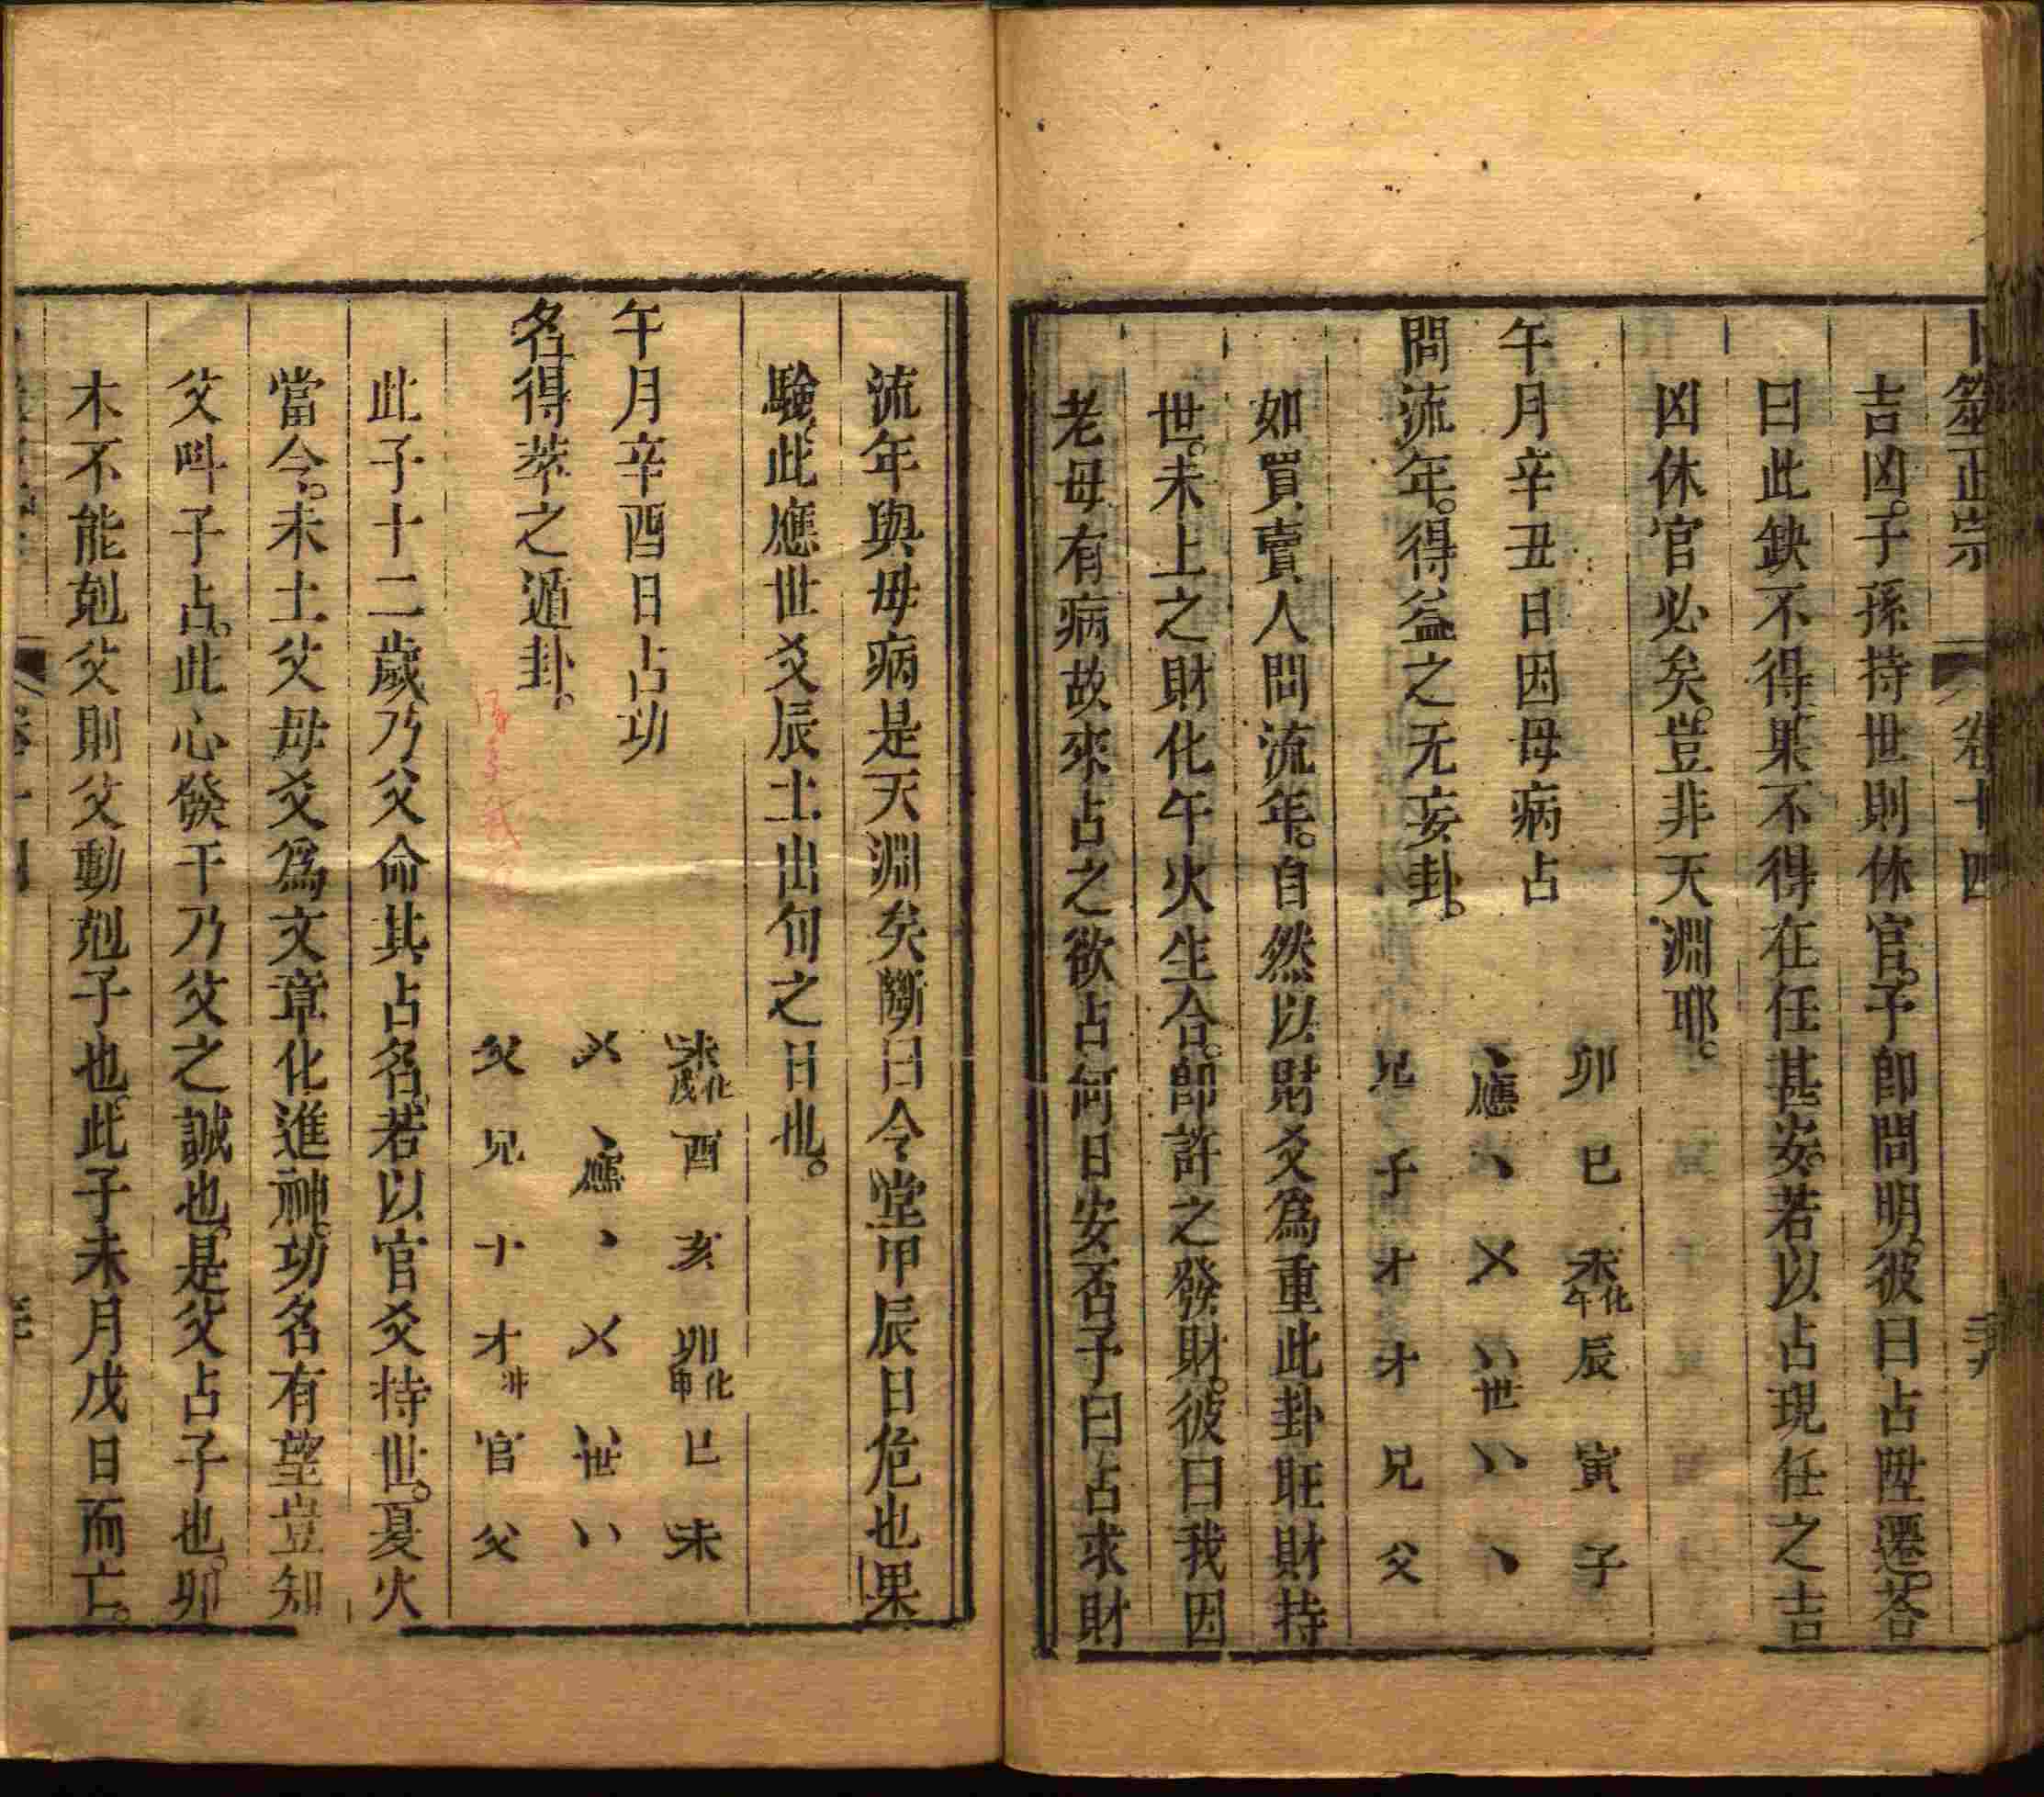 卜筮正宗 卷十四
吉凶。子孫持世則休官。子卽問明。彼曰占陞遷。荅
曰此缺不得。果不得在任甚安。若以占現任之吉
凶休官必矣。豈非天淵耶。
午月辛丑日因母病占
問流年。得益之无妄卦。
卯 巳 未化午 辰 寅 子
、應 、 乂 、、世 、、 、
兄 子 才 才 兄 父
如買賣人問流年。自然以財爻爲重此卦旺財持
世。未上之財化午火生合。卽許之發財。彼曰我因
老母有病故來占之欲占何日安否予曰占求財
流年與母病是天淵矣斷曰令堂甲辰日危也果
驗。此應世爻辰土出旬之日也。
午月辛酉日占功
名得萃之遁卦。
未化戌 酉 亥 卯化申 巳 未
乂 、應 、 乂 、、世 、、
父 兄 十 才 官 父
此子十二歲乃父命其占名。若以官爻持世。夏火
當令。未土父母爻爲文章化進神。功名有望豈知
父叫子占。此心發干乃父之誠也。是父占子也。卯
木不能剋父則父動剋子也。此子未月戊日而亡。